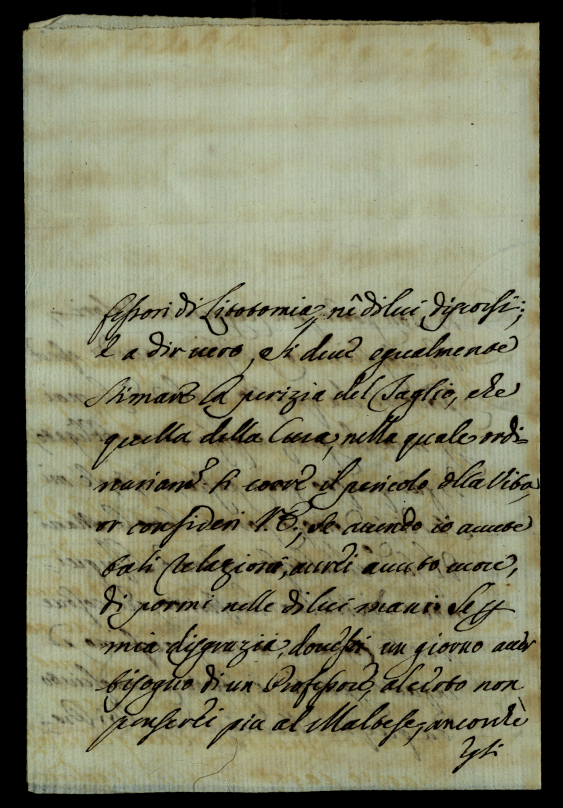 fessori di Litotomia, nè di lui discorsi;
e a dir vero, si deue egualmente
stimare la perizia del Taglio, che
quella della Cura, nella quale ordi-
nariam.e si corre il pericolo della Vita,
or consideri V. E., se auendo io auute
tali relazioni, aurei auuto cuore,
di pormi nelle di lui mani. Se p
mia disgrazia, douessi un giorno auer
bisogno di un Professore, al certo non
penserei piu al Maltese, ancorche
egli